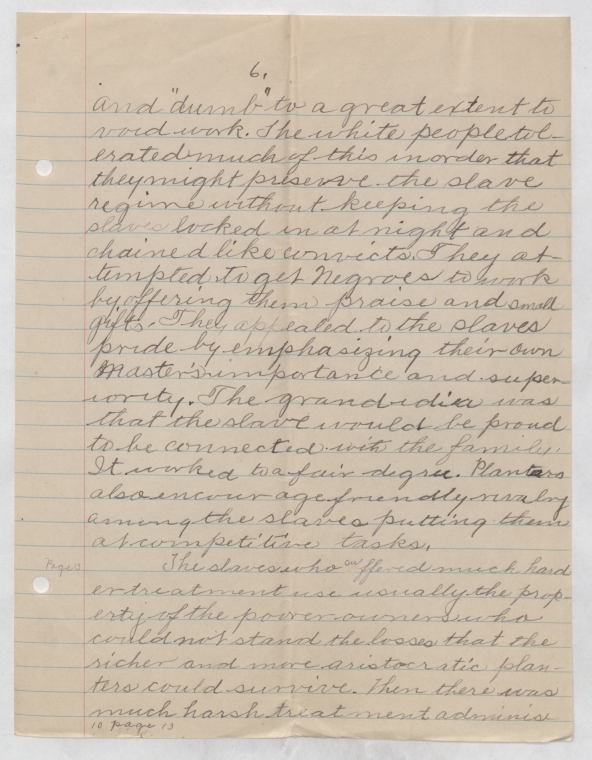 6.
and "dumb" to a great extent to
void work. The white people tol-
erated much of this inorder that
they might preserve the slave
regime without keeping the
slaves locked in at night and
chained like convicts. They at-
tempted to get Negroes to work
by offering them praise and small
gifts. They appealed to the slaves
pride by emphasizing their own
Master's importance and super-
iority. The grand idia was
that the slave would be proud
to be connected with the family.
It worked to a fair degree. Planters
also encourage friendly rivalry
among the slaves putting them
at competitive tasks.
The slaves who suffered much hard
er treatment use usually the prop-
erty of the poorer owners who
could not stand the losses that the
richer and more aristocratic plan-
ters could survive. Then there was
much harsh treatment adminis
10 page 13